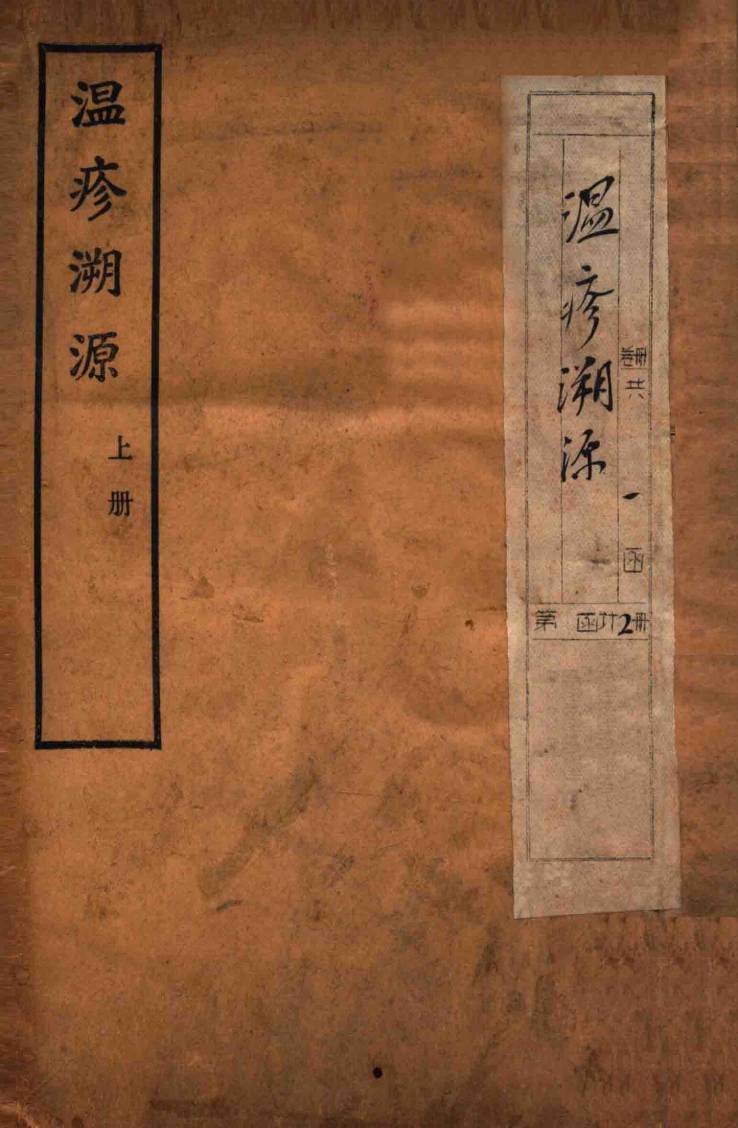 温疹溯源
上册
温疹溯源
共一函
第函计2册